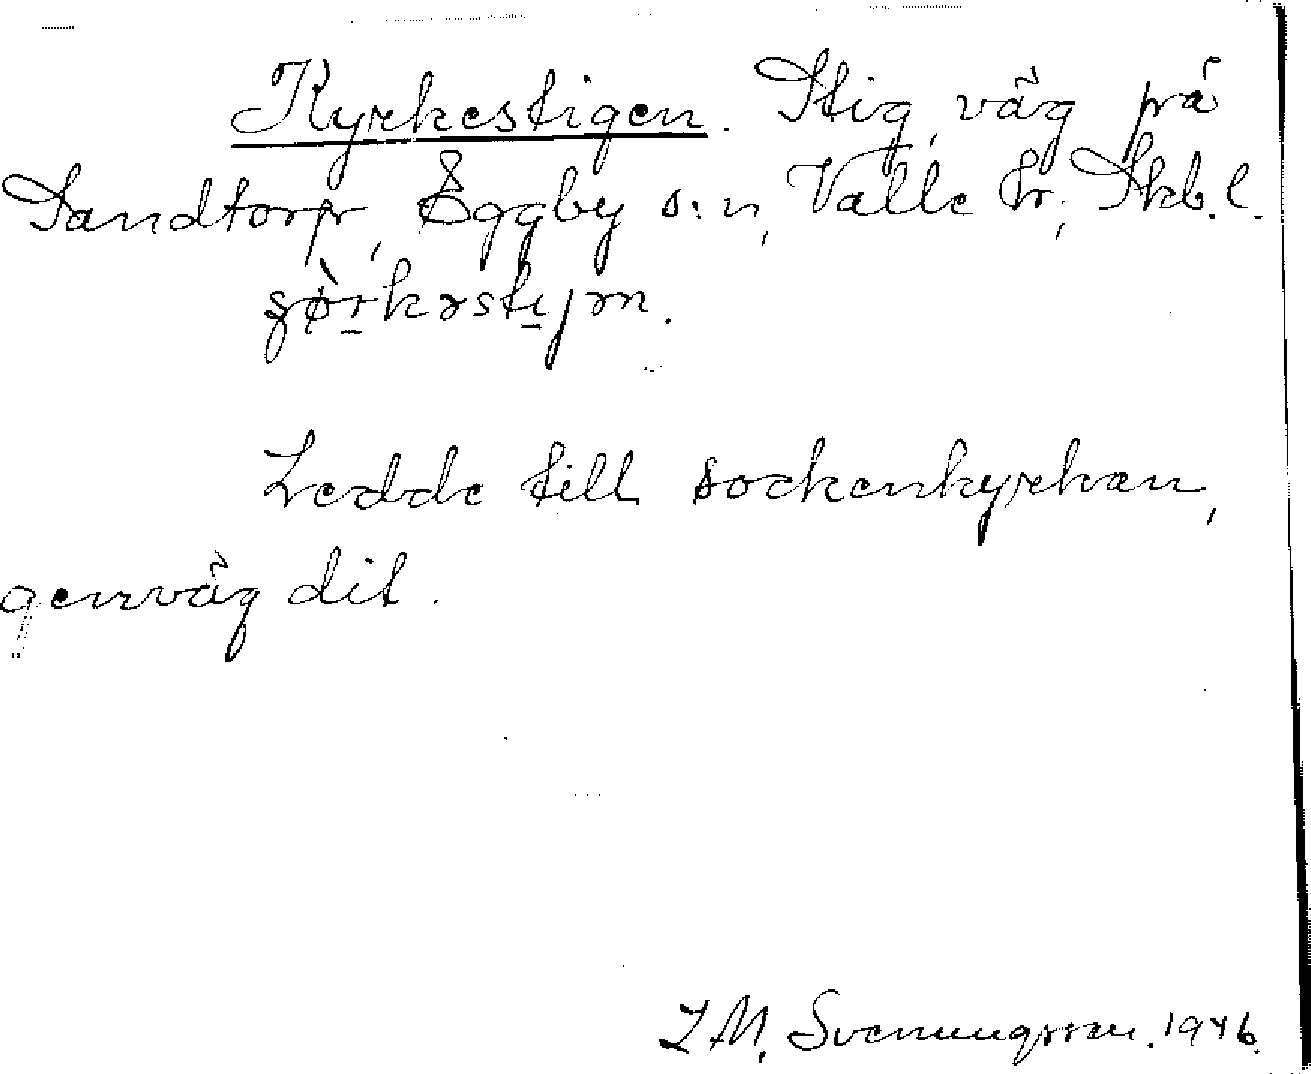 Kyrkestigen. Stig, väg på
Sandtorp, Eggby s:n, Valle hr, Skb.l.
Ledde till sockenkyrkan,
genväg dit.
Svenungsson. 1946.